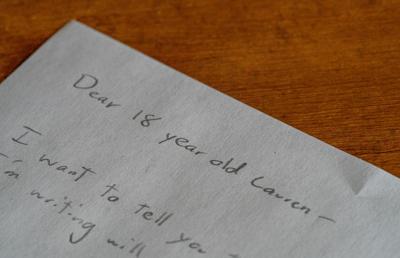 Dear 18 year old Lauren –
I want to tell you
I'm writing will